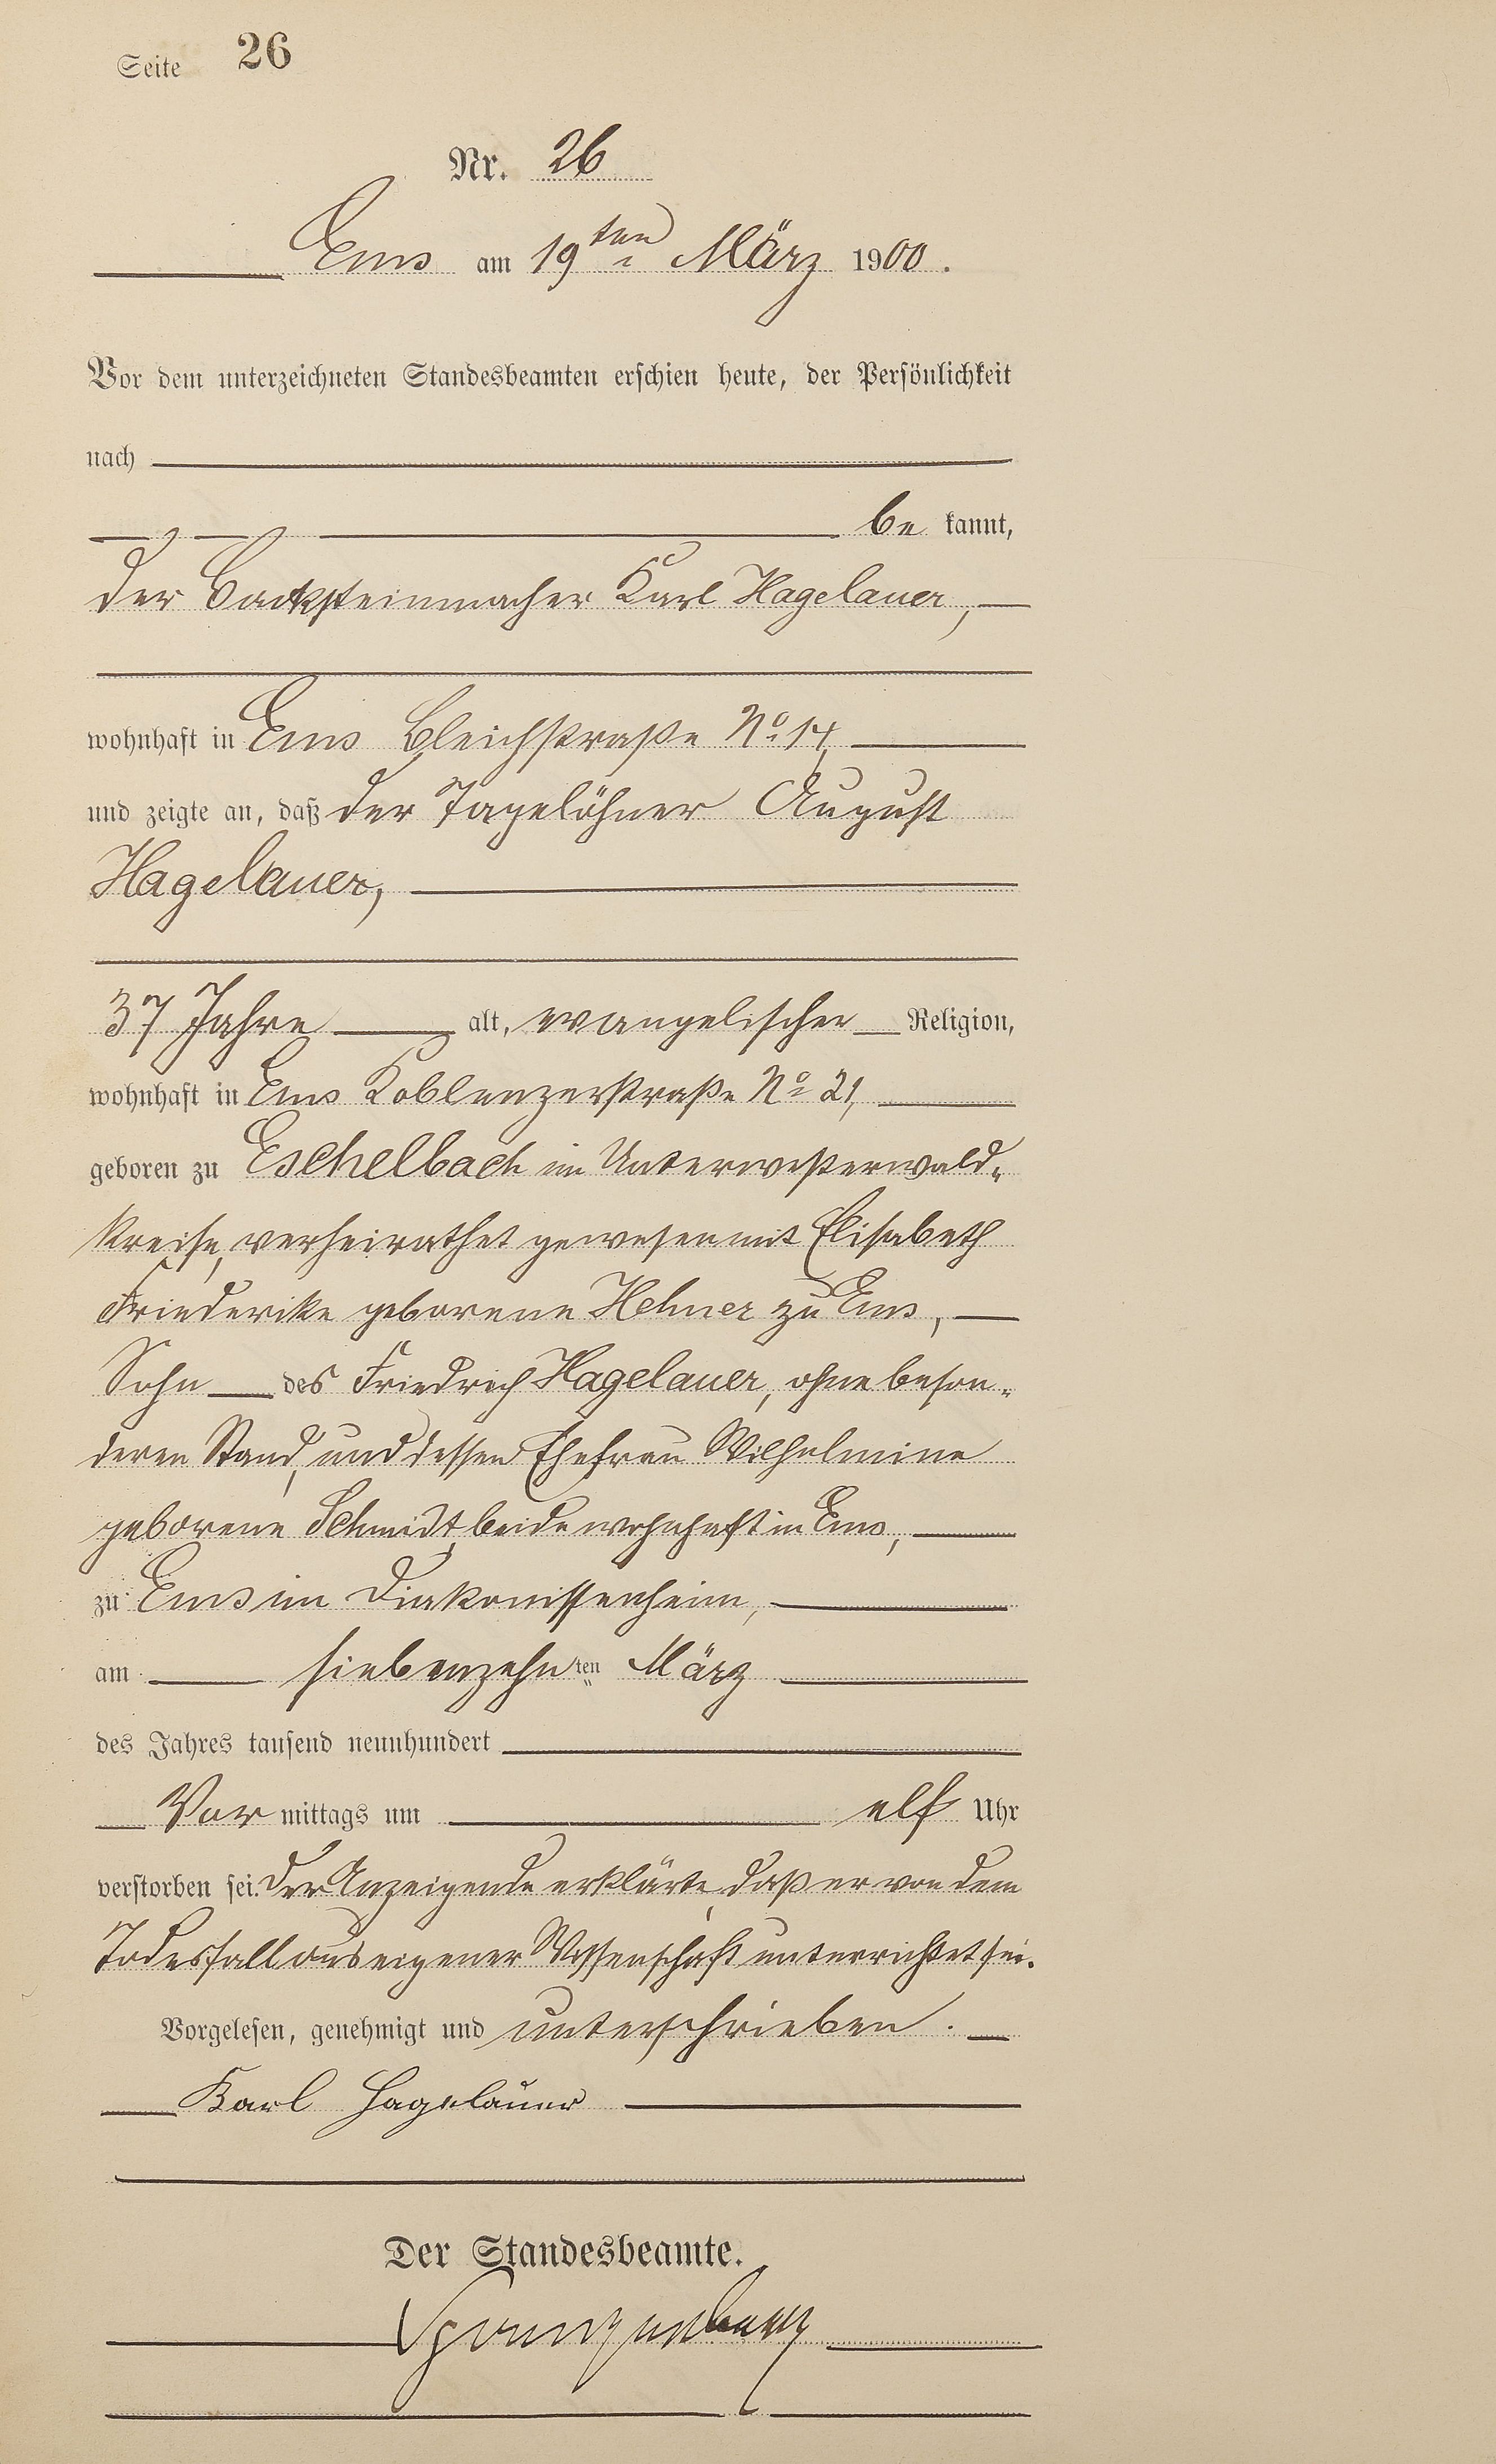 Seite 26
Nr. 26
Ems am 19ten März 1900.
Vor dem unterzeichneten Standesbeamten erschien heute, der Persönlichkeit
nach
be kannt,
der Backsteinmacher Karl Hagelauer,
wohnhaft in Ems Bleichstraße No 14,
und zeigte an, daß der Tagelöhner August
Hagelauer,
37 Jahre alt, evangelischer Religion,
wohnhaft in Ems Koblenzerstraße No 21,
geboren zu Eschelbach im Unterwesterwald-
kreise, verheirathet gewesen mit Elisabeth
Friederike geborene Hehner zu Ems,
Sohn des Friedrich Hagelauer, ohne beson-
deren Stand, und dessen Ehefrau Wilhelmine
geborene Schmidt, beide wohnhaft in Ems,
zu Ems im Diakonissenheim,
am siebenzehnten März
des Jahres tausend neunhundert
Vor mittags um elf Uhr
verstorben sei. Der Anzeigende erklärte, daß er von dem
Todesfall aus eigener Wissenschaft unterrichtet sei.
Vorgelesen, genehmigt und unterschrieben.
Karl Hagelauer
Der Standesbeamte.